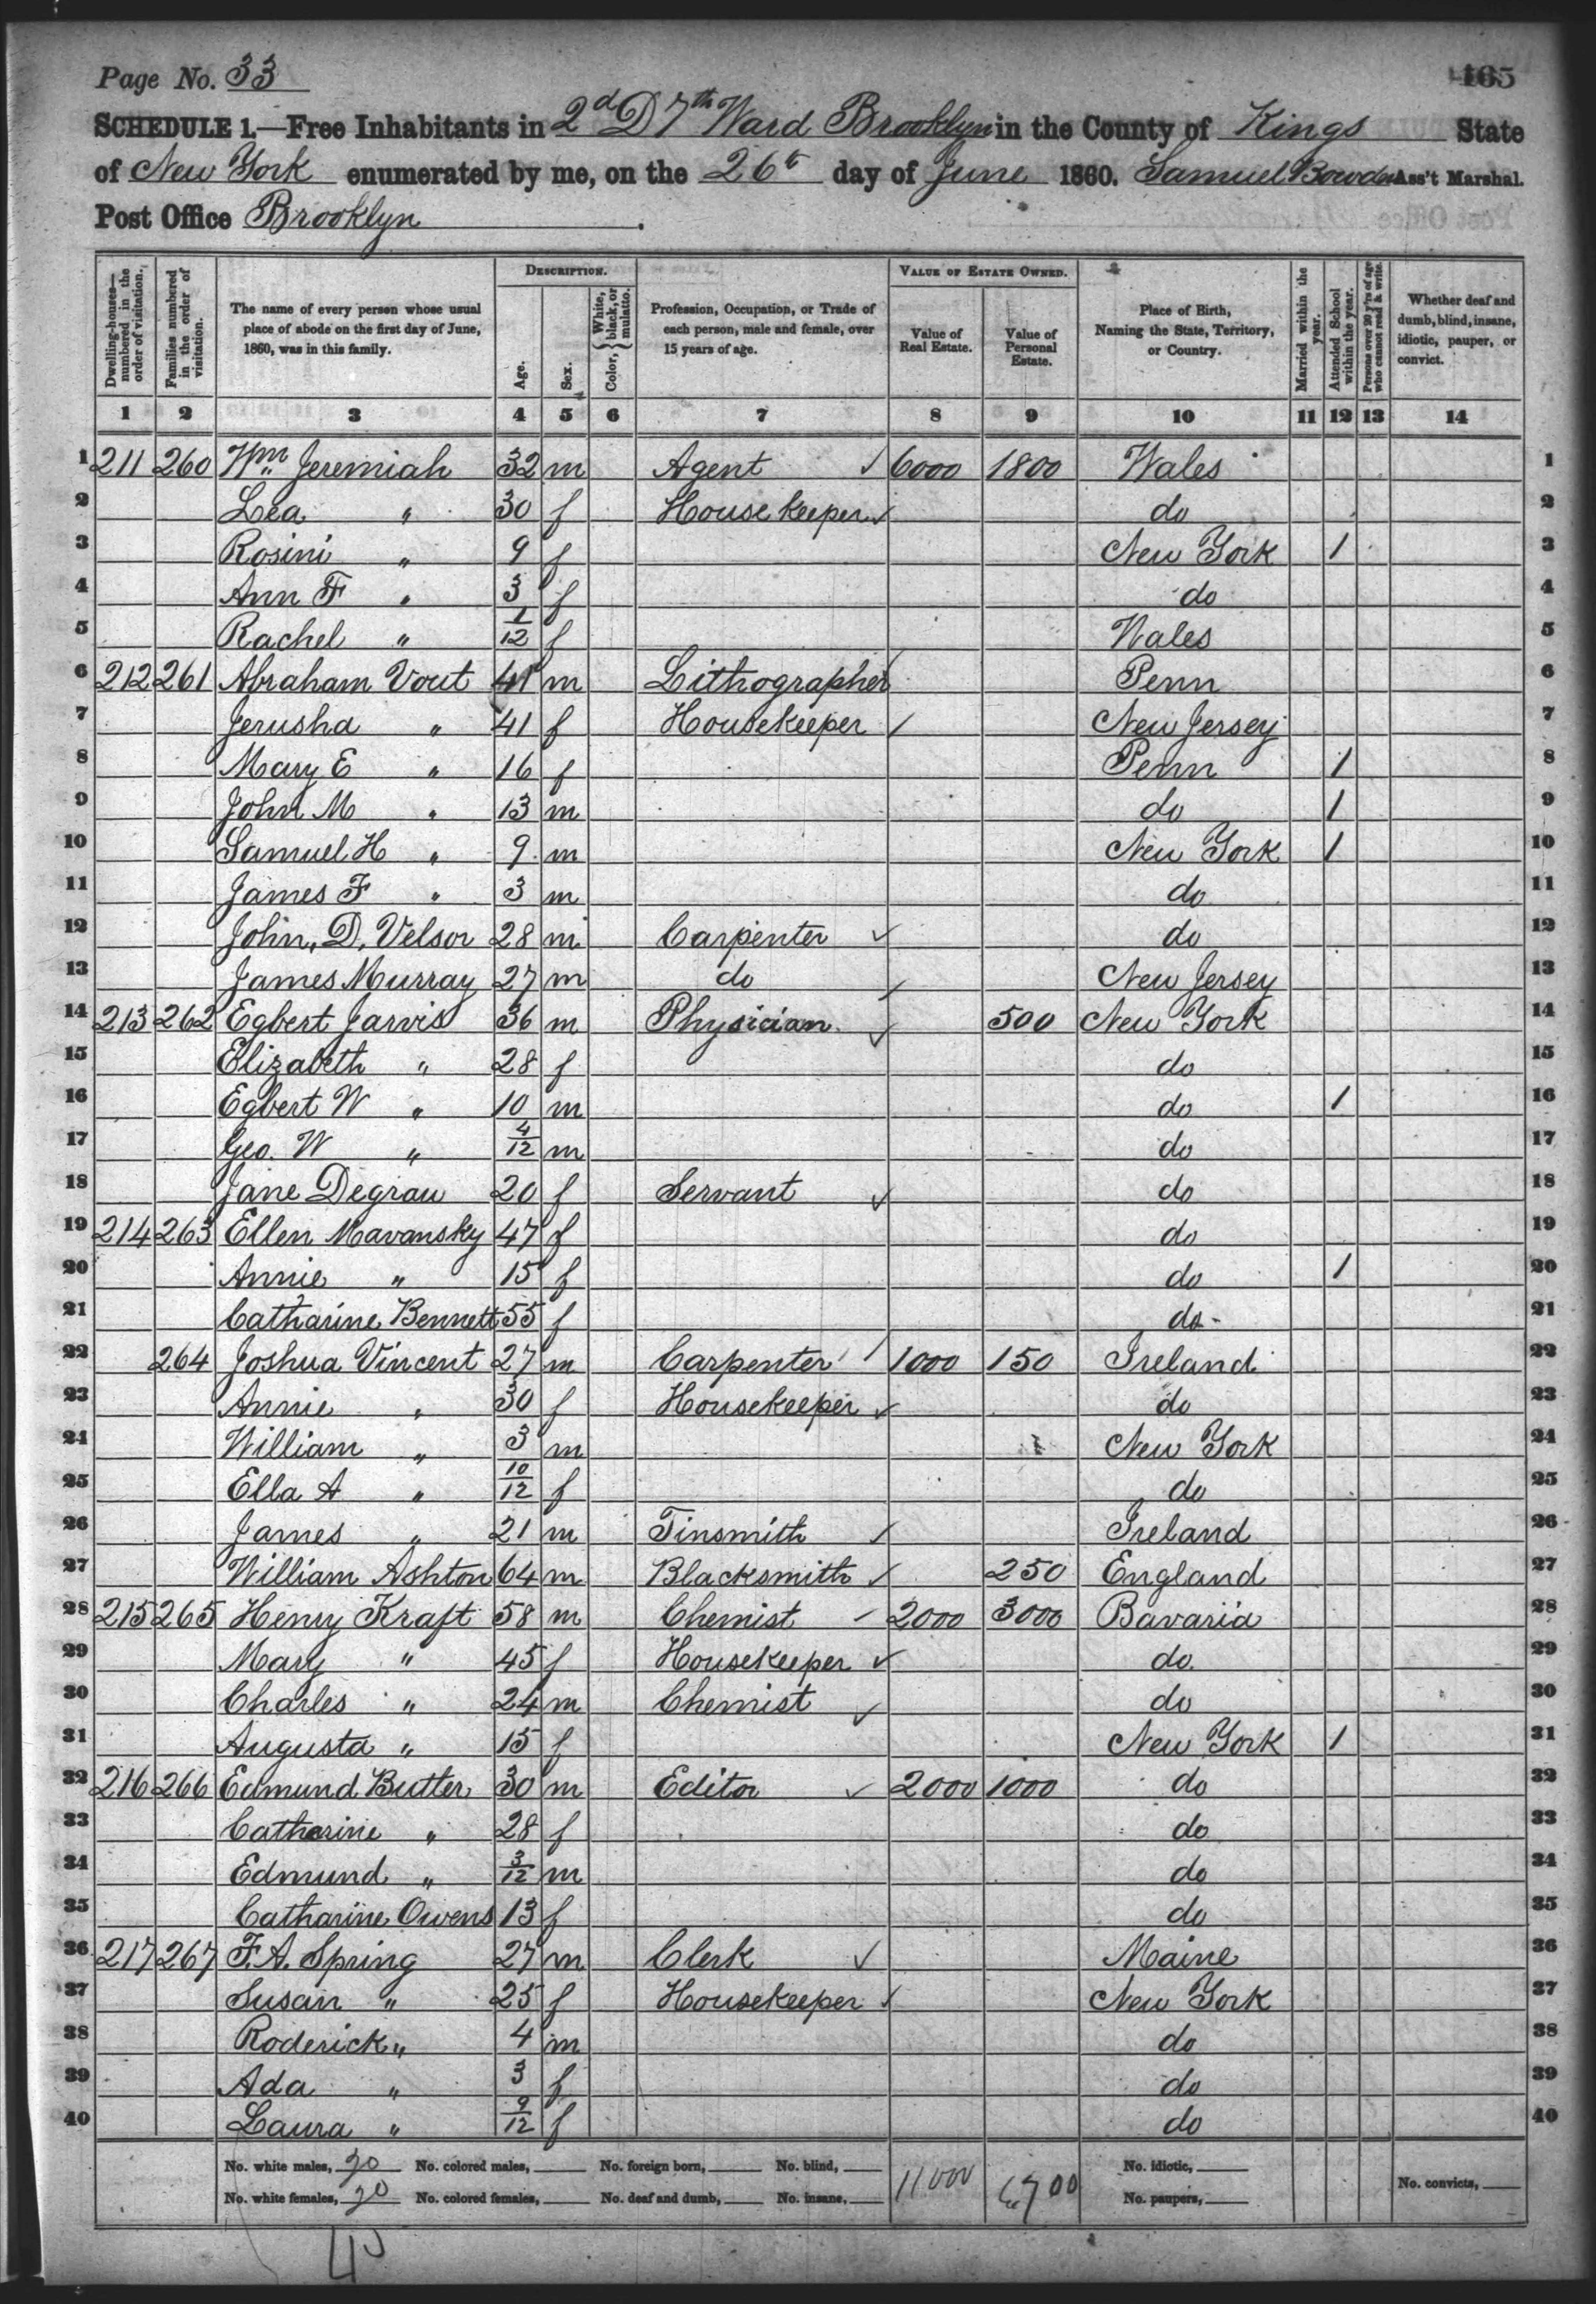 Page No. 33 165
SCHEDULE 1.—Free Inhabitants in 2d D 7th Ward Brooklyn in the County of Kings State
of New York enumerated by me, on the 26th day of June 1860. Samuel Bowden Ass't Marshal.
Post Office Brooklyn.
DESCRIPTION. VALUE OF ESTATE OWNED.
Dwelling-houses—numbered in the order of visitation. Families numbered in the order of visitation. The name of every person whose usual place of abode on the first day of June, 1860, was in this family. Age. Sex. Color, { White, black, or mulatto. Profession, Occupation, or Trade of each person, male and female, over 15 years of age. Value of Real Estate. Value of Personal Estate. Place of Birth, Naming the State, Territory, or Country. Married within the year. Attended School within the year. Persons over 20 y'rs of age who cannot read & write. Whether deaf and dumb, blind, insane, idiotic, pauper, or convict.
1 2 3 4 5 6 7 8 9 10 11 12 13 14
1 211 260 Wm Jeremiah 32 m Agent ✓ 6000 1800 Wales 1
2 Lea " 30 f Housekeeper ✓ do 2
3 Rosini " 9 f New York 1 3
4 Ann F " 3 f do 4
5 Rachel " 1/12 f Wales 5
6 212 261 Abraham Vout 41 m Lithographer Penn 6
7 Jerusha " 41 f Housekeeper / New Jersey 7
8 Mary E " 16 f Penn 1 8
9 John M " 13 m do 1 9
10 Samuel H " 9 m New York 1 10
11 James F " 3 m do 11
12 John, D, Velsor 28 m Carpenter ✓ do 12
13 James Murray 27 m do / New Jersey 13
14 213 262 Egbert Jarvis 36 m Physician ✓ 500 New York 14
15 Elizabeth " 28 f do 15
16 Egbert W " 10 m do 1 16
17 Geo. W " 4/12 m do 17
18 Jane Degrau 20 f Servant ✓ do 18
19 214 263 Ellen Mavansky 47 f do 19
20 Annie " 15 f do 1 20
21 Catharine Bennett 55 f do 21
22 264 Joshua Vincent 27 m Carpenter / 1000 150 Ireland 22
23 Annie " 30 f Housekeeper ✓ do 23
24 William " 3 m New York 24
25 Ella A " 10/12 f do 25
26 James " 21 m Tinsmith / Ireland 26
27 William Ashton 64 m Blacksmith ✓ 250 England 27
28 215 265 Henry Kraft 58 m Chemist - 2000 3000 Bavaria 28
29 Mary " 45 f Housekeeper ✓ do. 29
30 Charles " 24 m Chemist ✓ do 30
31 Augusta " 15 f New York 1 31
32 216 266 Edmund Butler 30 m Editor ✓ 2000 1000 do 32
33 Catharine " 28 f do 33
34 Edmund " 3/12 m do 34
35 Catharine Owens 13 f do 35
36 217 267 F. A. Spring 27 m Clerk ✓ Maine 36
37 Susan " 25 f Housekeeper ✓ New York 37
38 Roderick " 4 m do 38
39 Ada " 3 f do 39
40 Laura " 9/12 f do 40
No. white males, 20 No. colored males, No. foreign born, No. blind, 11000 6700 No. idiotic,
No. white females, 20 No. colored females, No. deaf and dumb, No. insane, No. paupers, No. convicts,
40